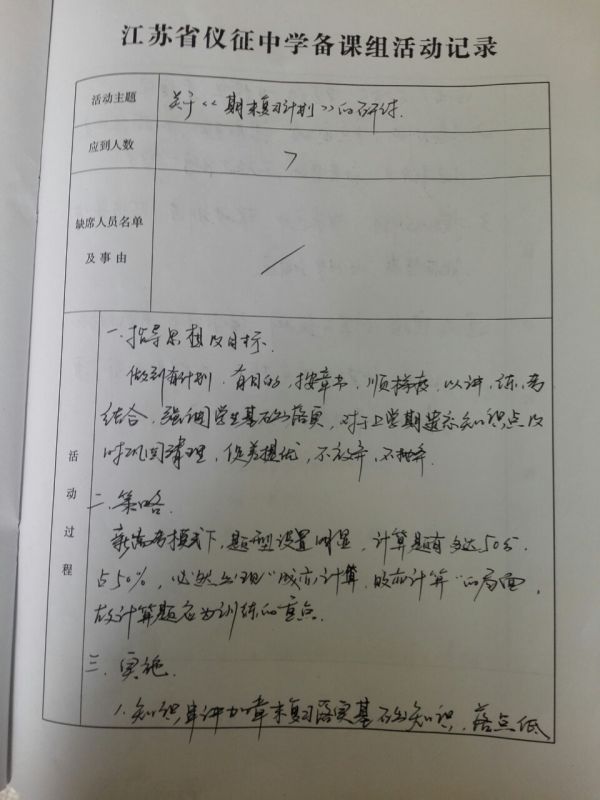 江苏省仪征中学备课组活动记录
活动主题
关于《期末复习计划》的研讨.
应到人数
7
缺席人员名单
及事由
活动过程
一. 指导思想及目标.
做到有计划, 有目的, 按章节, 顺 , 以讲, 练, 考
结合, 强调学生基础的落实, 对于上学期遗忘知识点及
时巩固清理, 促养提优, 不放弃, 不抛弃.
二. 策略.
新高考模式下, 题型设置明显, 计算题有多达50分,
占50%, 必然出现"成亦计算, 败亦计算"的局面,
故计算题应为训练的重点.
三. 实施.
1. 知识 讲加章末复习落实基础知识, 落点低